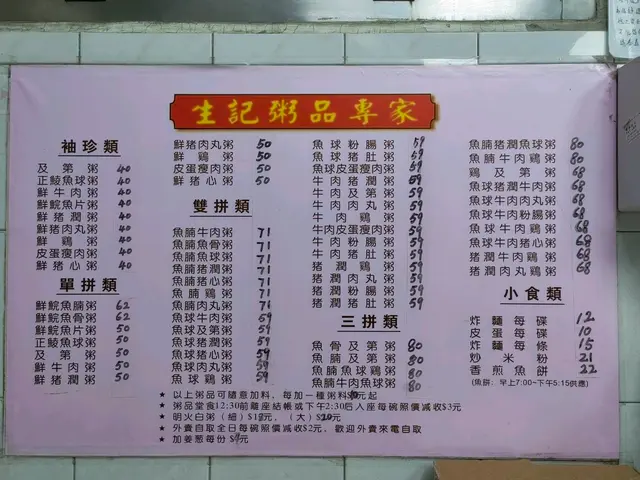 生記粥品專家
袖珍類
及第粥 40
正鯪魚球粥 40
鮮牛肉粥 40
鮮鯇魚片粥 40
鮮豬潤粥 40
鮮豬肉丸粥 40
鮮鷄粥 40
皮蛋瘦肉粥 40
鮮豬心粥 40
單拼類
鮮鯇魚腩粥 62
鮮鯇魚骨粥 62
鮮鯇魚片粥 50
正鯪魚球粥 50
及第粥 50
鮮牛肉粥 50
鮮豬潤粥 50
鮮豬肉丸粥 50
鮮鷄粥 50
皮蛋瘦肉粥 50
鮮豬心粥 50
雙拼類
魚腩牛肉粥 71
魚腩魚骨粥 71
魚腩魚球粥 71
魚腩豬潤粥 71
魚腩豬心粥 71
魚腩鷄粥 71
魚腩肉丸粥 71
魚球牛肉粥 59
魚球及第粥 59
魚球豬潤粥 59
魚球豬心粥 59
魚球肉丸粥 59
魚球鷄粥 59
魚球粉腸粥 59
魚球豬肚粥 59
魚球皮蛋瘦肉粥 59
牛肉豬潤粥 59
牛肉及第粥 59
牛肉肉丸粥 59
牛肉鷄粥 59
牛肉皮蛋瘦肉粥 59
牛肉粉腸粥 59
牛肉豬肚粥 59
豬潤鷄粥 59
豬潤肉丸粥 59
豬潤粉腸粥 59
豬潤豬肚粥 59
三拼類
魚骨及第粥 80
魚腩及第粥 80
魚腩魚球鷄粥 80
魚腩牛肉魚球粥 80
魚腩豬潤魚球粥 80
魚腩牛肉鷄粥 80
鷄及第粥 68
魚球豬潤牛肉粥 68
魚球牛肉肉丸粥 68
魚球牛肉粉腸粥 68
魚球牛肉鷄粥 68
魚球牛肉豬心粥 68
豬潤牛肉鷄粥 68
豬潤肉丸鷄粥 68
小食類
炸麵每碟 12
皮蛋每碟 10
炸麵每條 15
炒米粉 21
香煎魚餅 22
(魚餅：早上7:00~下午5:15供應)
★ 以上粥品可隨意加料，每加一種粥料
★ 粥品堂食12:30前離座結帳或下午2:30后入座每碗照價減收$3元
★ 明火白粥（細） （大）
★ 外賣自取全日每碗照價減收$2元，歡迎外賣來電自取
★ 加姜葱每份